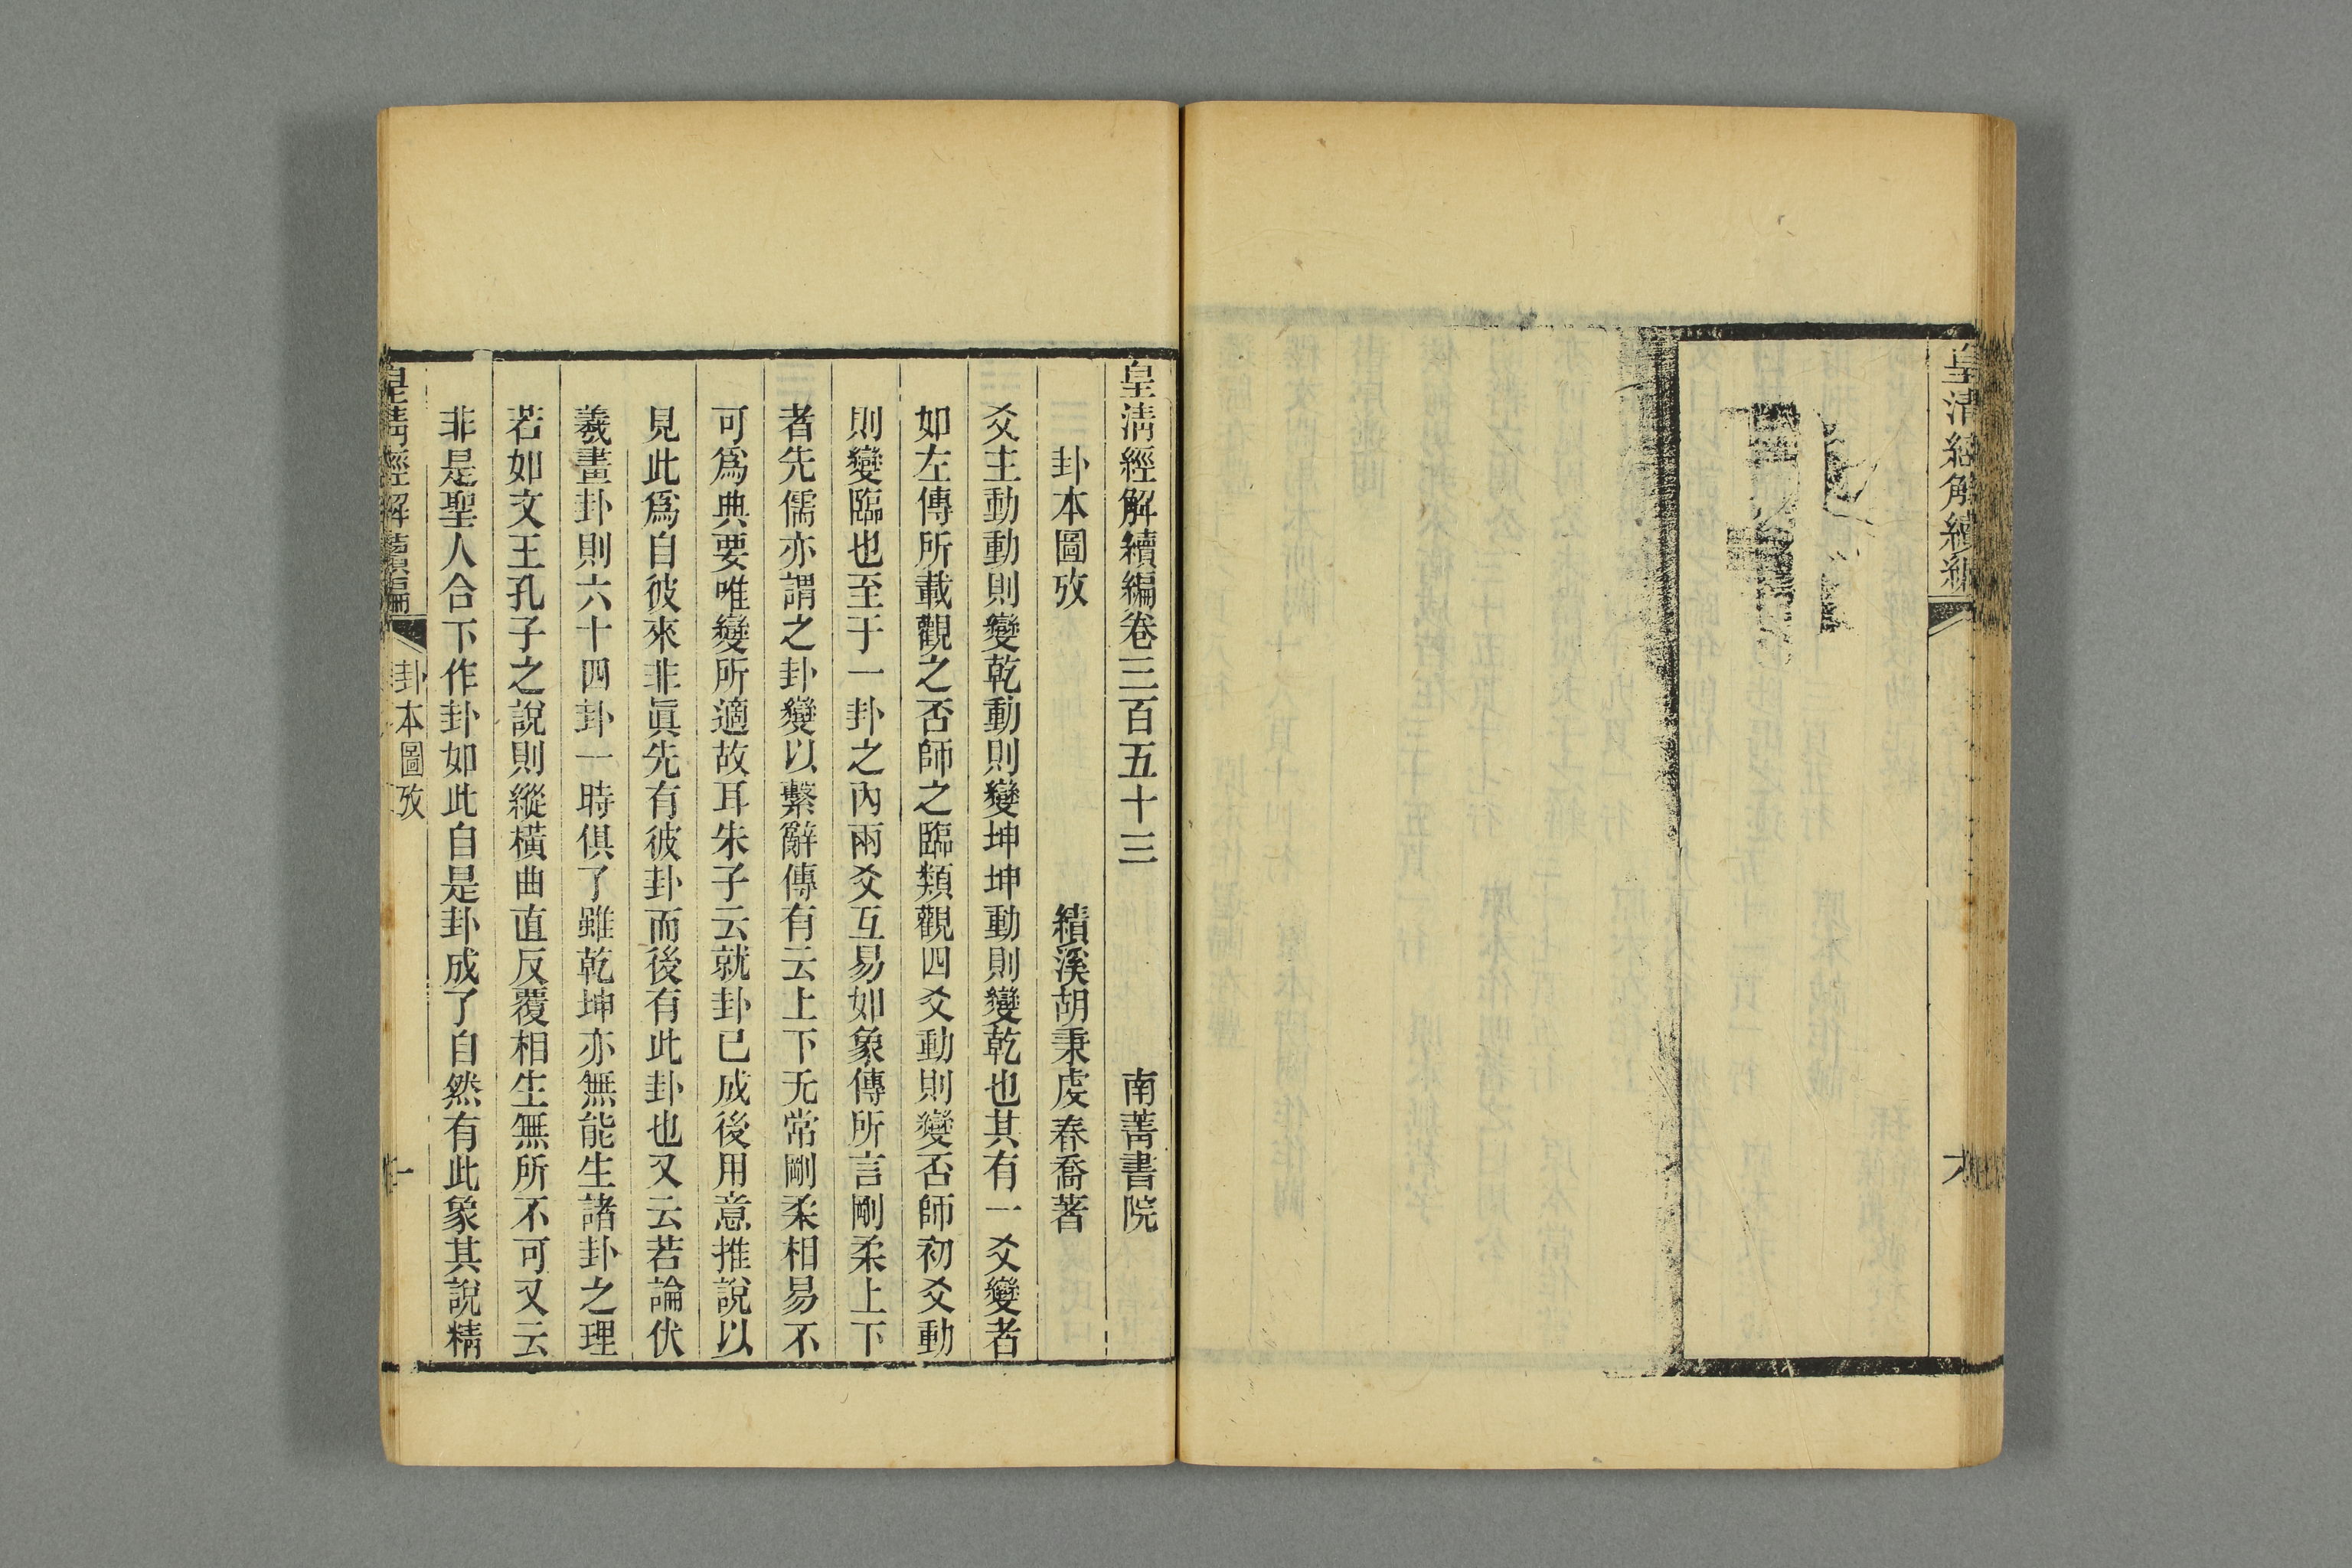 皇清經解續編
皇清經解續編卷三百五十三 南菁書院
卦本圖攷 績溪胡秉虔春喬著
爻主動動則變乾動則變坤坤動則變乾也其有一爻變者
如左傳所載觀之否師之臨類觀四爻動則變否師初爻動
則變臨也至于一卦之內兩爻互易如彖傳所言剛柔上下
者先儒亦謂之卦變以繫辭傳有云上下无常剛柔相易不
可爲典要唯變所適故耳朱子云就卦已成後用意推說以
見此爲自彼來非眞先有彼卦而後有此卦也又云若論伏
羲畫卦則六十四卦一時俱了雖乾坤亦無能生諸卦之理
若如文王孔子之說則縱橫曲直反覆相生無所不可又云
非是聖人合下作卦如此自是卦成了自然有此象其說精
皇淸經解續編 卦本圖攷 一